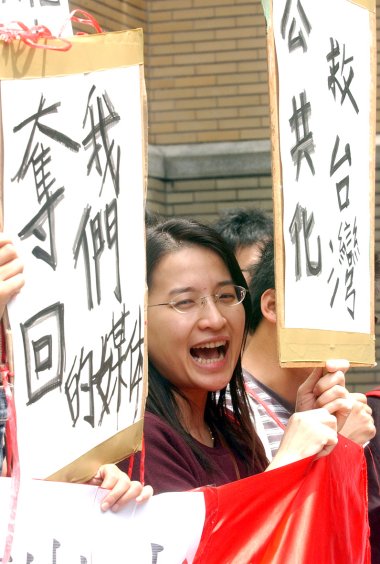 奪回
我們
的媒
公共化
救台灣